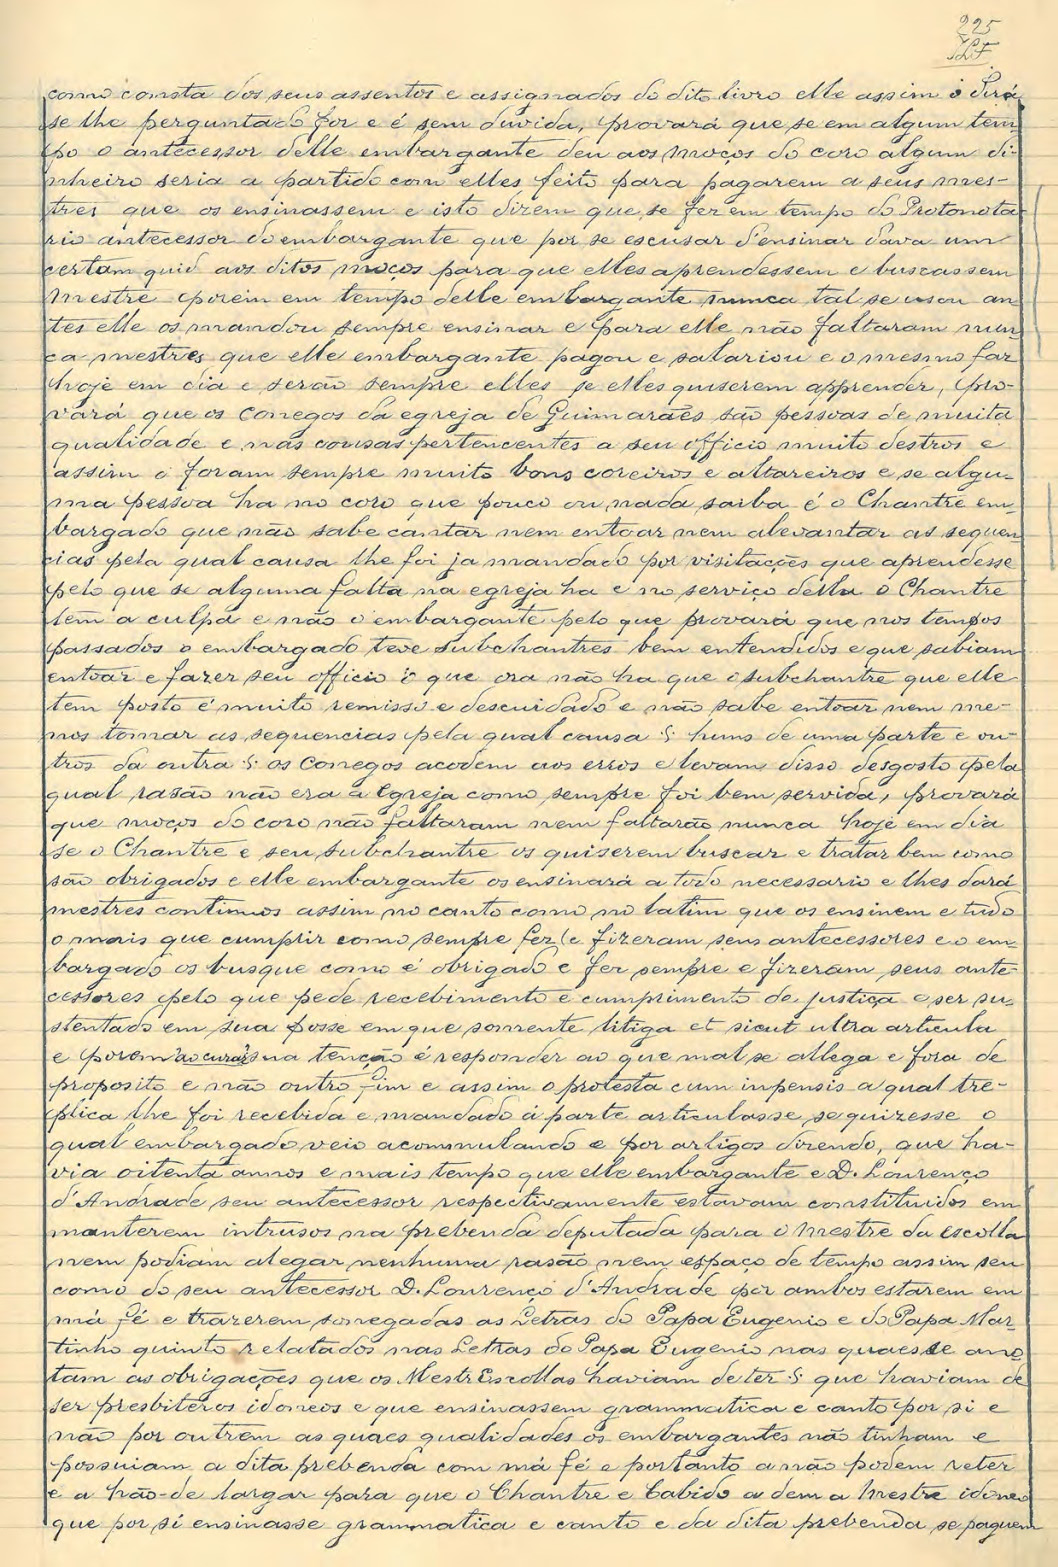 225
como consta dos seus assentos e assignados do dito livro elle assim o dirá
se lhe perguntado for e é sem duvida, provará que se em algum tem-
po o antecessor delle embargante deu aos moços do coro algum di-
nheiro seria a partido com elles feito para pagarem a seus mes-
tres que os ensinassem e isto dizem que se fez em tempo do Protonota-
rio antecessor do embargante que por se escusar d'ensinar dava um
certam quid aos ditos moços para que elles aprendessem e buscassem
Mestre e porem em tempo delle embargante nunca tal se usou an-
tes elle os mandou sempre ensinar e para elle não faltaram nun-
ca mestres que elle embargante pagou e salariou e o mesmo faz
hoje em dia e serão sempre elles se elles quiserem apprender, pro-
vará que os conegos da egreja de Guimarães são pessoas de muita
qualidade e nas cousas pertencentes a seu officio muito destros e
assim o foram sempre muito bons coreiros e altareiros e se algu-
ma pessoa ha no coro que pouco ou nada saiba é o Chantre em-
bargado que não sabe cantar nem entoar nem alevantar as sequen-
cias pela qual causa lhe foi ja mandado por visitações que aprendesse
pelo que se alguma falta na egreja ha e no serviço della o Chantre
tem a culpa e não o embargante pelo que provará que nos tempos
passados o embargado teve subchantres bem entendidos e que sabiam
entoar e fazer seu officio o que ora não ha que o subchantre que elle
tem posto é muito remisso e descuidado e não sabe entoar nem me-
nos tomar as sequencias pela qual causa § huns de uma parte e ou-
tros da outra § os Conegos acodem aos erros e levam disso desgosto pela
qual rasão não era a Egreja como sempre foi bem servida, provará
que moços do coro não faltaram nem faltarão nunca hoje em dia
se o Chantre e seu subchantre os quiserem buscar e tratar bem como
são obrigados e elle embargante os ensinará a todo necessario e lhes dará
mestres continuos assim no canto como no latim que os ensinem e tudo
o mais que cumprir como sempre fez (e fizeram seus antecessores e o em-
bargado os busque como é obrigado e fez sempre e fizeram seus ante-
cessores pelo que pede recebimento e cumprimento de justiça e ser su-
stentado em sua posse em que somente litiga et sicut ultra articula
e porem sua tenção é responder ao que mal se allega e fora de
proposito e não outro fim e assim o protesta cum inpensis a qual tre-
plica lhe foi recebida e mandado á parte articulasse se quizesse o
qual embargado veio acommulando e por artigos dizendo, que ha-
via oitenta annos e mais tempo que elle embargante e D. Lourenço
d'Andrade seu antecessor respectivamente estavam constituidos em
manterem intrusos na prebenda deputada para o Mestre da escolla
nem podiam alegar nenhuma rasão nem espaço de tempo assim seu
como do seu antecessor D. Lourenço d'Andrade por ambos estarem em
má fé e trazerem sonegadas as Letras do Papa Eugenio e do Papa Mar-
tinho quinto relatados nas Letras do Papa Eugenio nas quaes se ano-
tam as obrigações que os MestrEscollas haviam de ter § que haviam de
ser presbiteros idoneos e que ensinassem grammatica e canto por si e
não por outrem as quaes qualidades os embargantes não tinham e
possuiam a dita prebenda com má fé e portanto a não podem reter
e a hão-de largar para que o Chantre e Cabido a dem a Mestre idoneo
que por si ensinasse grammatica e canto e da dita prebenda se paguem